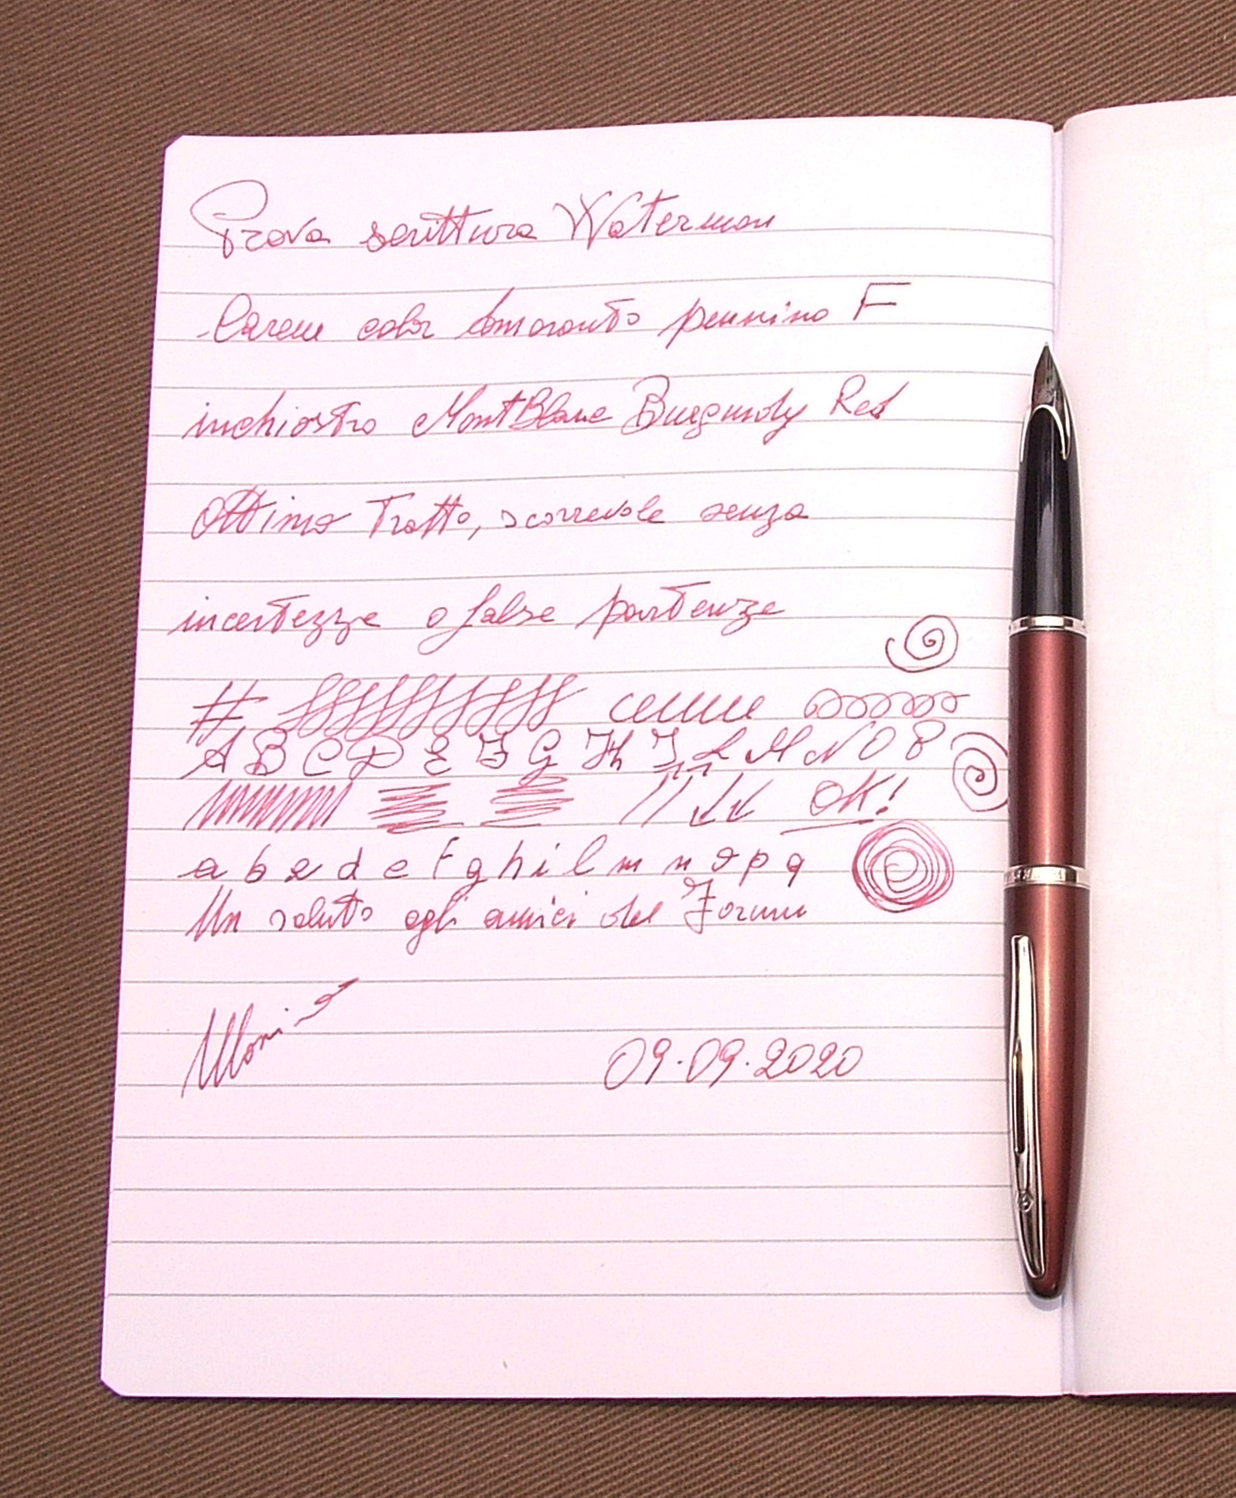 Prova scrittura Waterman
Carene color amaranto pennino F
inchiostro MontBlanc Burgundy Red
Ottimo Tratto, scorrevole senza
incertezze o false partenze
#
A B C D E F G H I L M N O P
OK!
a b c d e f g h i l m n o p q
Un saluto agli amici del Forum
09.09.2020